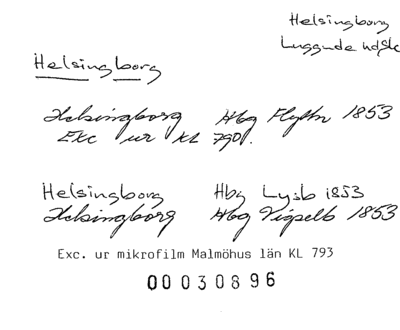 Helsingborg
Luggude hd Sk
Helsingborg
Helsingborg Hbg Flyttn 1853
Exc ur KL 790.
Helsingborg Hbg Lysb 1853
Helsingborg Hbg Vigselb 1853
Exc. ur mikrofilm Malmöhus län KL 793
00030896